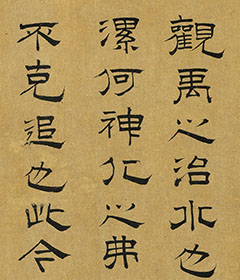 觀禹之治水也
漯何神化之弗
不克追也此今